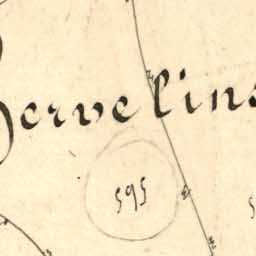 Bervelins
595